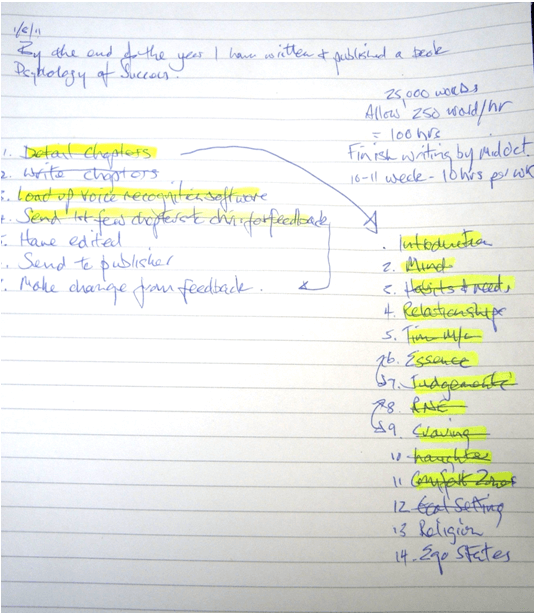 1/8/11
By the end of the year I have written & published a book
Psychology of Success.
25,000 words
Allow 250 word/hr
= 100 hrs
Finish writing by mid Oct.
10-11 week - 10 hrs per wk
1. Detail chapters
2. Write chapters
3. Load up voice recognition software
4. Send 1st few chapters to chris for feedback
5. Have edited
. Send to publisher
. Make change from feedback.
1. Introduction
2. Mind
3. Habits & needs
4. Relationships
5. Time M/c
6. Essence
7. Judgement
8. RNE
9. Craving
10 Laughter
11 Comfort Zones
12 Goal Setting
13 Religion
14. Ego States